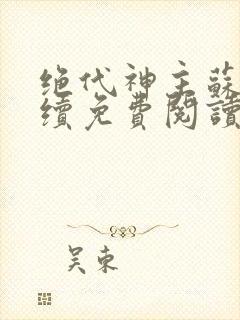 绝代神主蘇
續免費閱讀
吴东